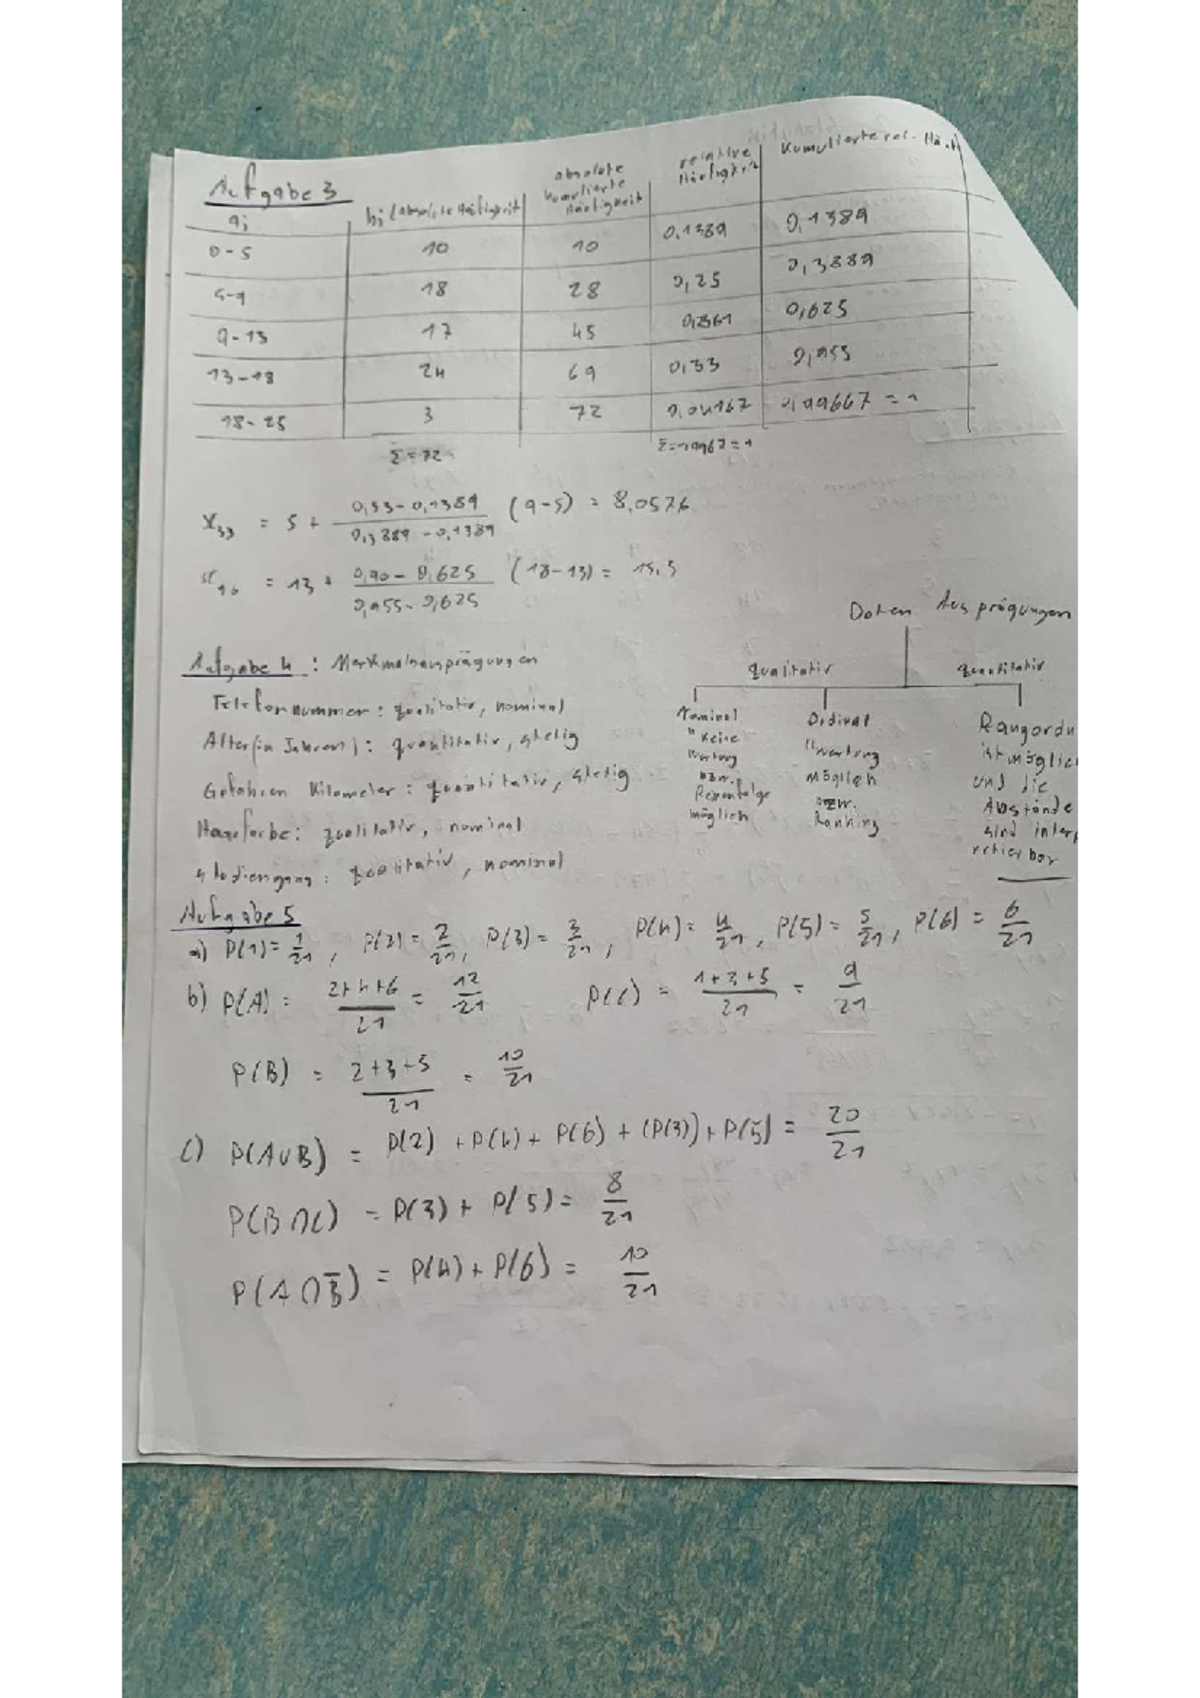 Aufgabe 3
aj | hj (absolute Häufigkeit) | absolute kumulierte Häufigkeit | relative Häufigkeit | Kumulierte rel. Häuf
0-5 | 10 | 10 | 0,1389 | 0,1389
5-9 | 18 | 28 | 0,25 | 0,3889
9-13 | 17 | 45 | 0,2361 | 0,625
13-18 | 24 | 69 | 0,33 | 0,955
18-25 | 3 | 72 | 0,04167 | 0,99667 = 1
Σ=72
= 5 + (0,33 - 0,1389)/(0,3889 - 0,1389) (9-5) = 8,0576
= 13 + (0,90 - 0,625)/(0,955 - 0,625) (18-13) =
Daten Ausprägungen
qualitativ quantitativ
Nominal
"Keine
Wertung
bzw.
Reihenfolge
möglich
Ordinal
Wertung
möglich
bzw.
Ranking
Rangordnu
ist möglic
und die
Abstände
sind interp
retierbar
Aufgabe 4: Merkmalsausprägungen
Telefonnummer: qualitativ, nominal
Alter (in Jahren): quantitativ, stetig
Gefahren Kilometer: quantitativ, stetig
Haarfarbe: qualitativ, nominal
Studiengang: qualitativ, nominal
Aufgabe 5
a) P(1)= 1/21, P(2)= 2/21, P(3)= 3/21, P(4)= 4/21, P(5)= 5/21, P(6)= 6/21
b) P(A) = (2+4+6)/21 = 12/21 P(C) = (1+3+5)/21 = 9/21
P(B) = (2+3+5)/21 = 10/21
c) P(A∪B) = P(2) + P(4) + P(6) + (P(3)) + P(5) = 20/21
P(B∩C) = P(3) + P(5) = 8/21
P(A∩B̅) = P(4) + P(6) = 10/21